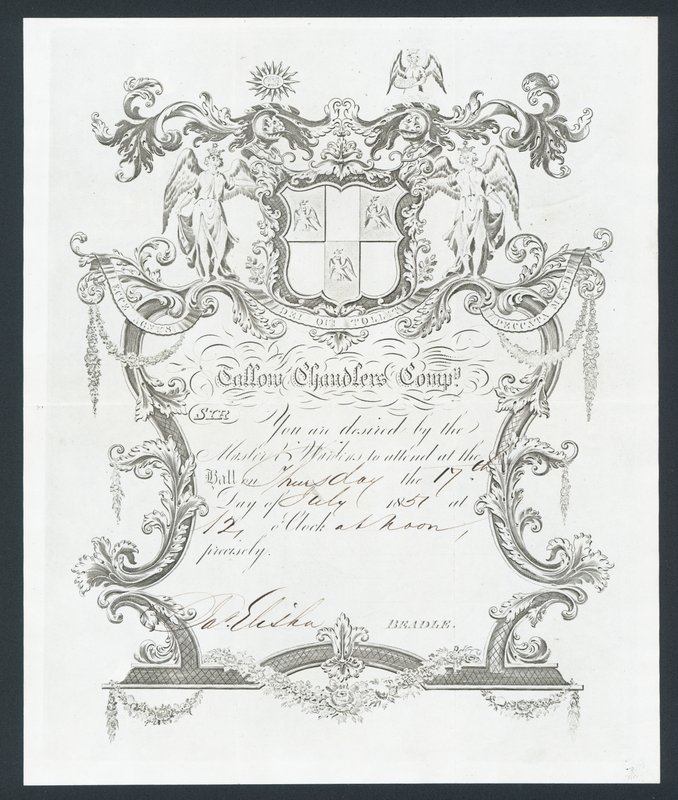 ECCE AGNUS DEI QUI TOLLIT PECCATA MUNDI
Tallow Chandlers Compy.
SIR
You are desired by the
Master & Wardens to attend at the
Hall on Thursday the 17th
Day of July 1851 at
12, o'Clock at noon,
precisely.
Jas. Elisha BEADLE.